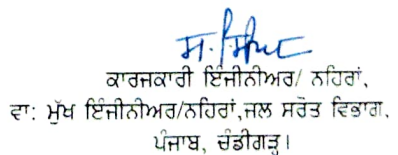 ਕਾਰਜਕਾਰੀ ਇੰਜੀਨੀਅਰ/ ਨਹਿਰਾਂ,
ਵਾ: ਮੁੱਖ ਇੰਜੀਨੀਅਰ/ਨਹਿਰਾਂ,ਜਲ ਸਰੋਤ ਵਿਭਾਗ,
ਪੰਜਾਬ, ਚੰਡੀਗੜ੍ਹ।